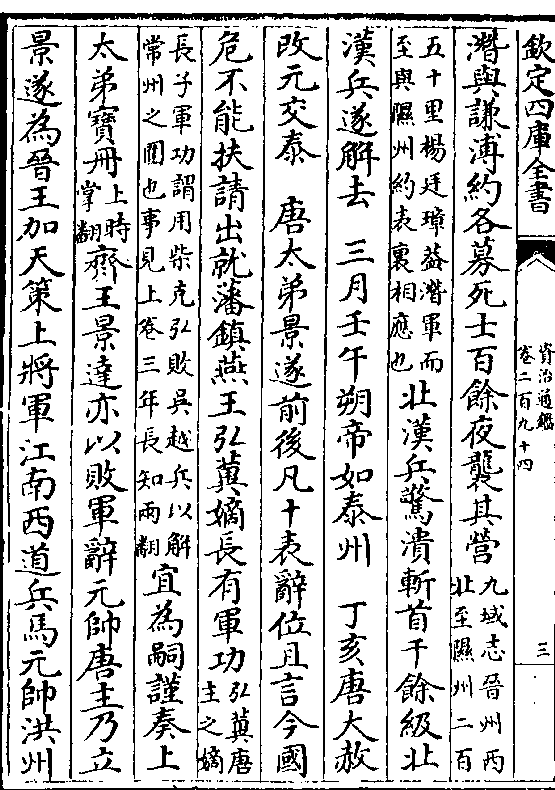 欽定四庫全書
資治通鑑
卷二百九十四
三
潛與謙溥約各募死士百餘夜襲其營九域志晉州西北至隰州二百
五十里楊廷璋葢潛軍而至與隰州約表裏相應也北漢兵驚潰斬首千餘級北
漢兵遂解去 三月壬午朔帝如泰州 丁亥唐大赦
改元交泰 唐太弟景遂前後凡十表辭位且言今國
危不能扶請出就藩鎮燕王弘冀嫡長有軍功弘冀唐主之嫡
長子軍功謂用柴克弘敗吳越兵以解常州之圍也事見上卷三年長知兩翻宜為嗣謹奏上
太弟寶冊上時掌翻齊王景達亦以敗軍辭元帥唐主乃立
景遂為晉王加天策上將軍江南西道兵馬元帥洪州